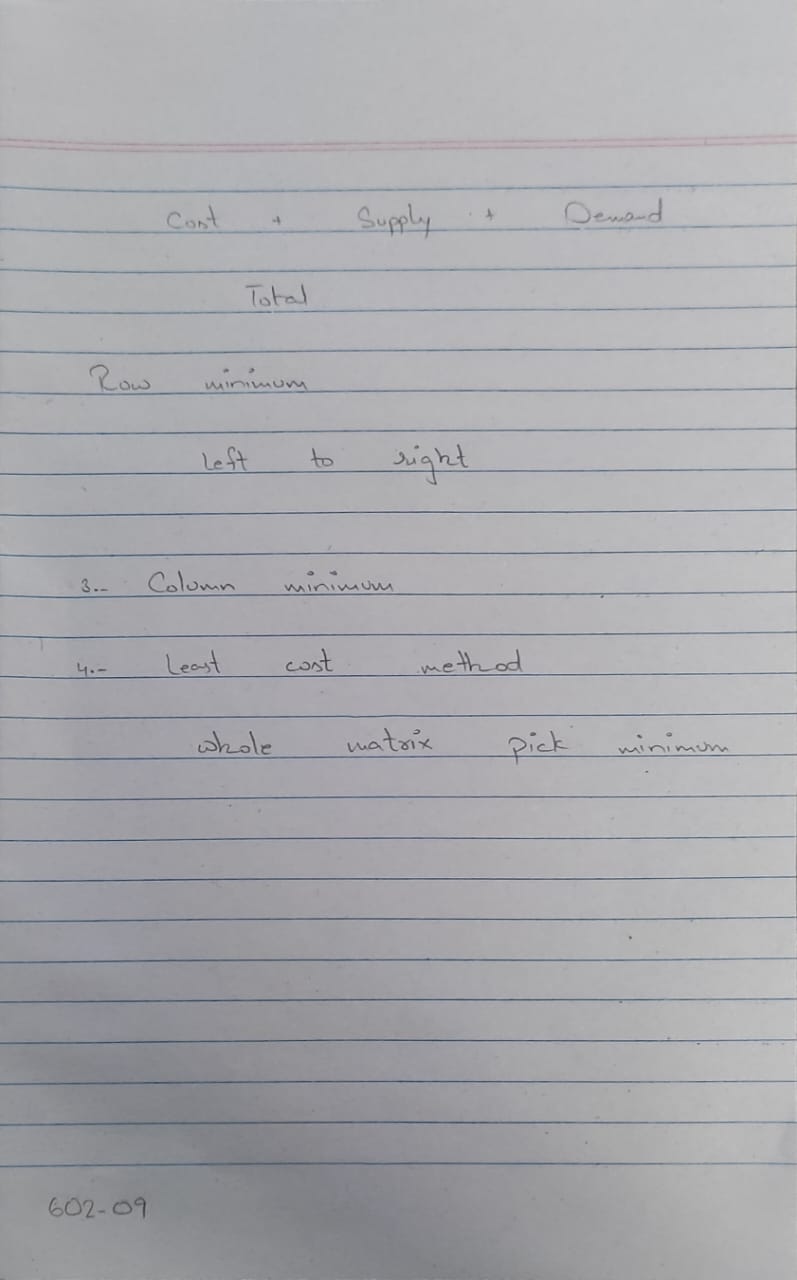 Cost + Supply + Demand
Total
Row minimum
Left to right
3.- Column minimum
4.- Least cost method
whole matrix pick minimum
602-09